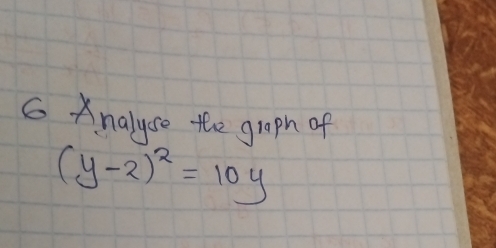 6 Analyse the graph of
(y-2)² = 10y